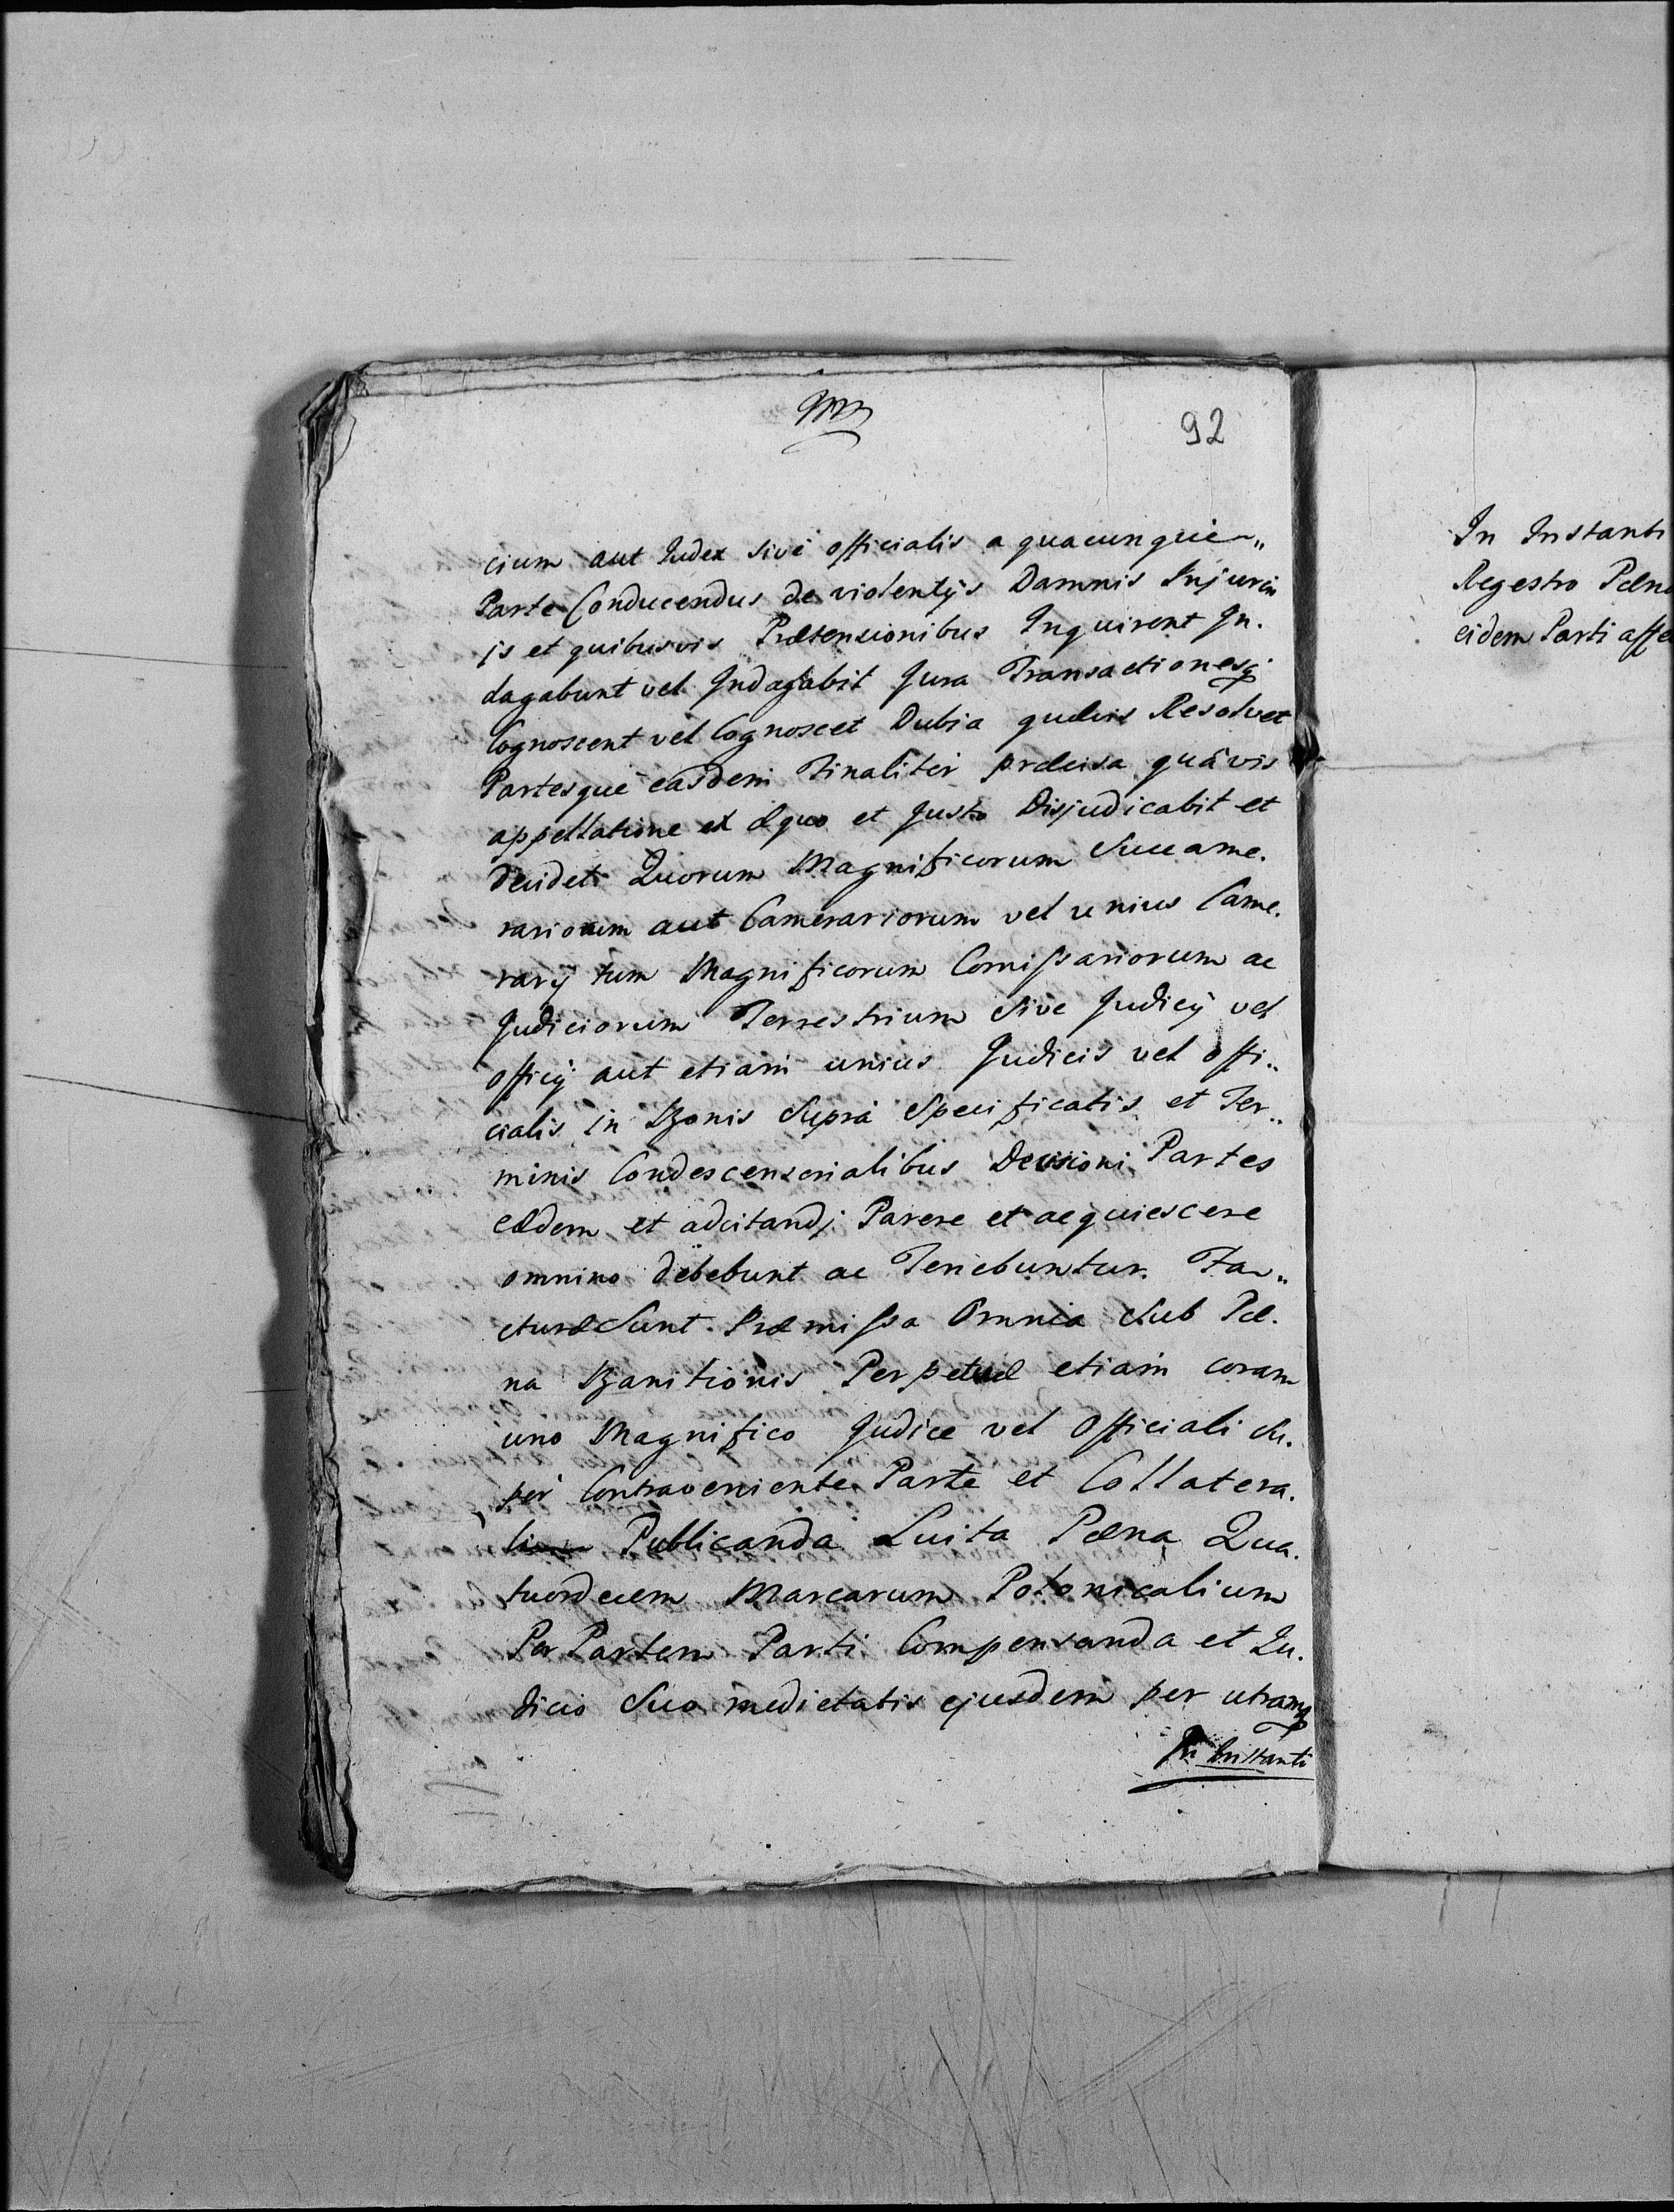 92
cium aut Judex sive officialis a quacunque„
Parte Conducendus de violentijs Damnis Injurin
js et quibusvis Prætensionibus Inquirent In.
dagabunt vel Indagabit Jura Transactionesq
Cognoscent vel Cognoscet Dubia quævis Resolvet
Partesque easdem Finaliter præcisa quâvis
appellatione ex æquo et Justo Disjudicabit et
decidet. Quorum Magnificorum Succame.
rariorum aut Camerariorum vel unius Came.
rarij tum Magnificorum Comissariorum ac
Judiciorum Terrestrium sive Judicij vel
officij aut etiam unius Judicis vel offi„
cialis in Bonis Supra Specificatis et Ter„
minis Condescensorialibus Decisioni Partes
eædem et adcitandj Parere et acquiescere
omnino debebunt ac Tenebuntur. Fa„
cturæ Sunt. Præmissa Omnia Sub Pæ.
na Banitionis Perpetuæ etiam coram
uno Magnifico Judice vel Officiali su.
per Contraveniente Parte et Collatera.
Publicanda Luita Pæna Qua.
tuordecem Marcarum Polonicalium
Per Partem Parti Compensanda et Iu.
dicio Suo medietatis ejusdem per utramq
In Instanti
In Instanti
Regestro Pæna
eidem Parti affe